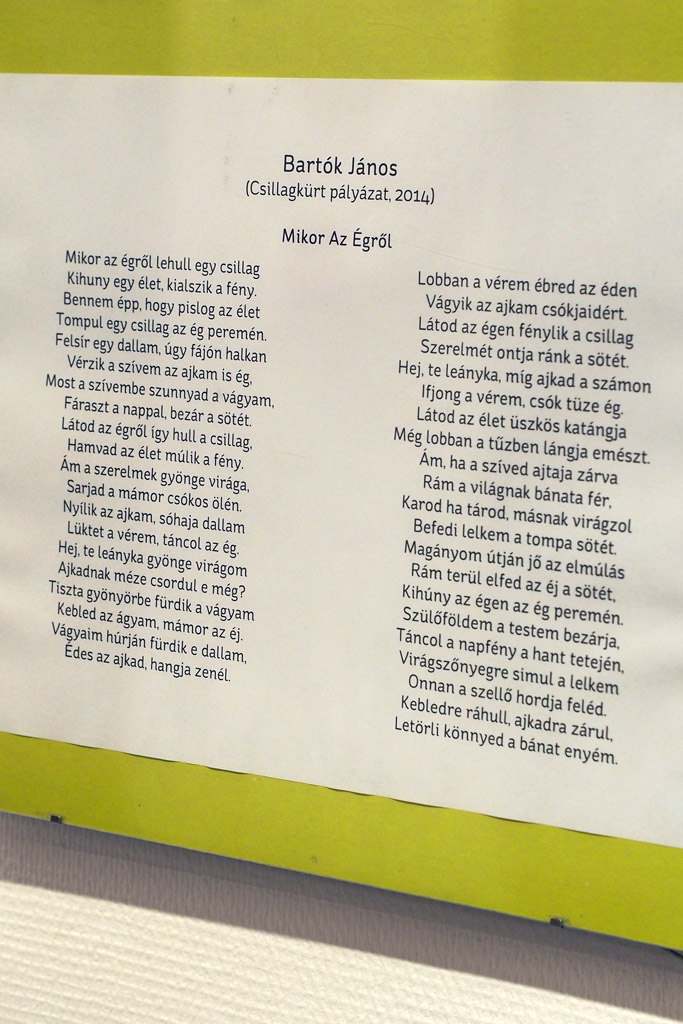 Bartók János
(Csillagkürt pályázat, 2014)
Mikor Az Égről
Mikor az égről lehull egy csillag
Kihuny egy élet, kialszik a fény.
Bennem épp, hogy pislog az élet
Tompul egy csillag az ég peremén.
Felsír egy dallam, úgy fájón halkan
Vérzik a szívem az ajkam is ég,
Most a szívembe szunnyad a vágyam,
Fáraszt a nappal, bezár a sötét.
Látod az égről így hull a csillag,
Hamvad az élet múlik a fény.
Ám a szerelmek gyönge virága,
Sarjad a mámor csókos ölén.
Nyílik az ajkam, sóhaja dallam
Lüktet a vérem, táncol az ég.
Hej, te leányka gyönge virágom
Ajkadnak méze csordul e még?
Tiszta gyönyörbe fürdik a vágyam
Kebled az ágyam, mámor az éj.
Vágyaim húrján fürdik e dallam,
Édes az ajkad, hangja zenél.
Lobban a vérem ébred az éden
Vágyik az ajkam csókjaidért.
Látod az égen fénylik a csillag
Szerelmét ontja ránk a sötét.
Hej, te leányka, míg ajkad a számon
Ifjong a vérem, csók tüze ég.
Látod az élet üszkös katángja
Még lobban a tűzben lángja emészt.
Ám, ha a szíved ajtaja zárva
Rám a világnak bánata fér,
Karod ha tárod, másnak virágzol
Befedi lelkem a tompa sötét.
Magányom útján jő az elmúlás
Rám terül elfed az éj a sötét,
Kihúny az égen az ég peremén.
Szülőföldem a testem bezárja,
Táncol a napfény a hant tetején,
Virágszőnyegre simul a lelkem
Onnan a szellő hordja feléd.
Kebledre ráhull, ajkadra zárul,
Letörli könnyed a bánat enyém.